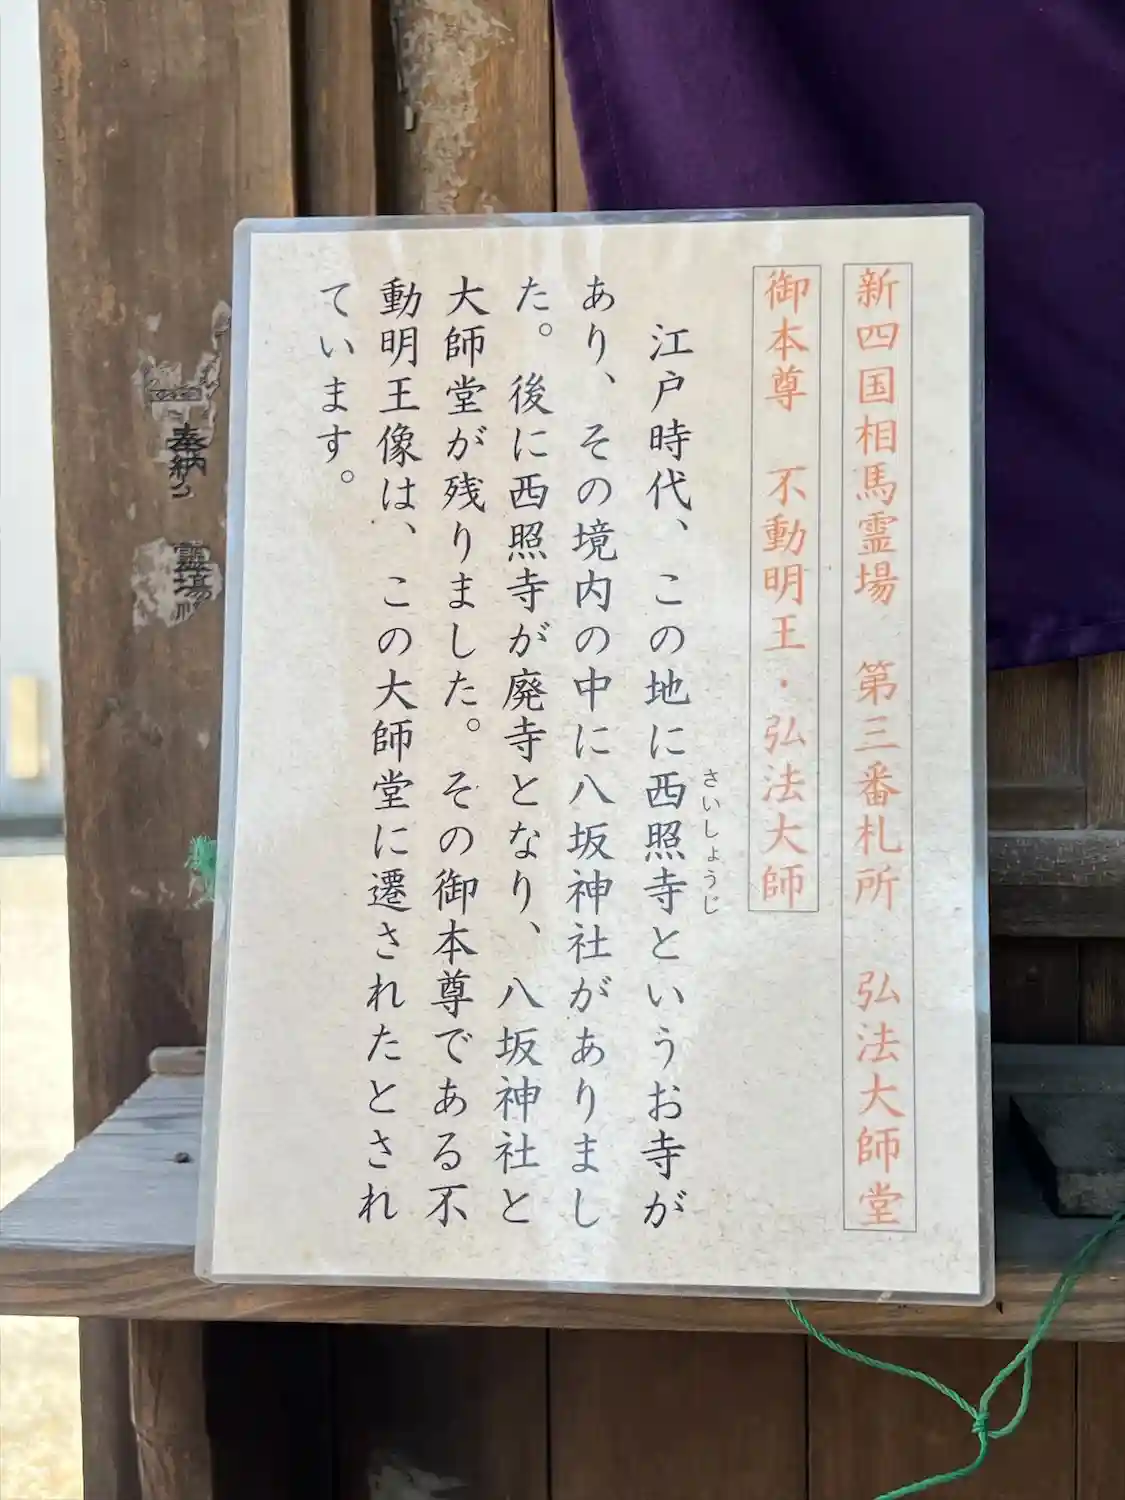 新四国相馬霊場　第三番札所　弘法大師堂
御本尊　不動明王・弘法大師
江戸時代、この地に西照寺というお寺が
さいしょうじ
あり、その境内の中に八坂神社がありまし
た。後に西照寺が廃寺となり、八坂神社と
大師堂が残りました。その御本尊である不
動明王像は、この大師堂に遷されたとされ
ています。
奉納
霊場